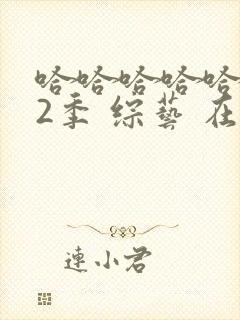 哈哈哈哈哈
2季 综藝 在
連小君